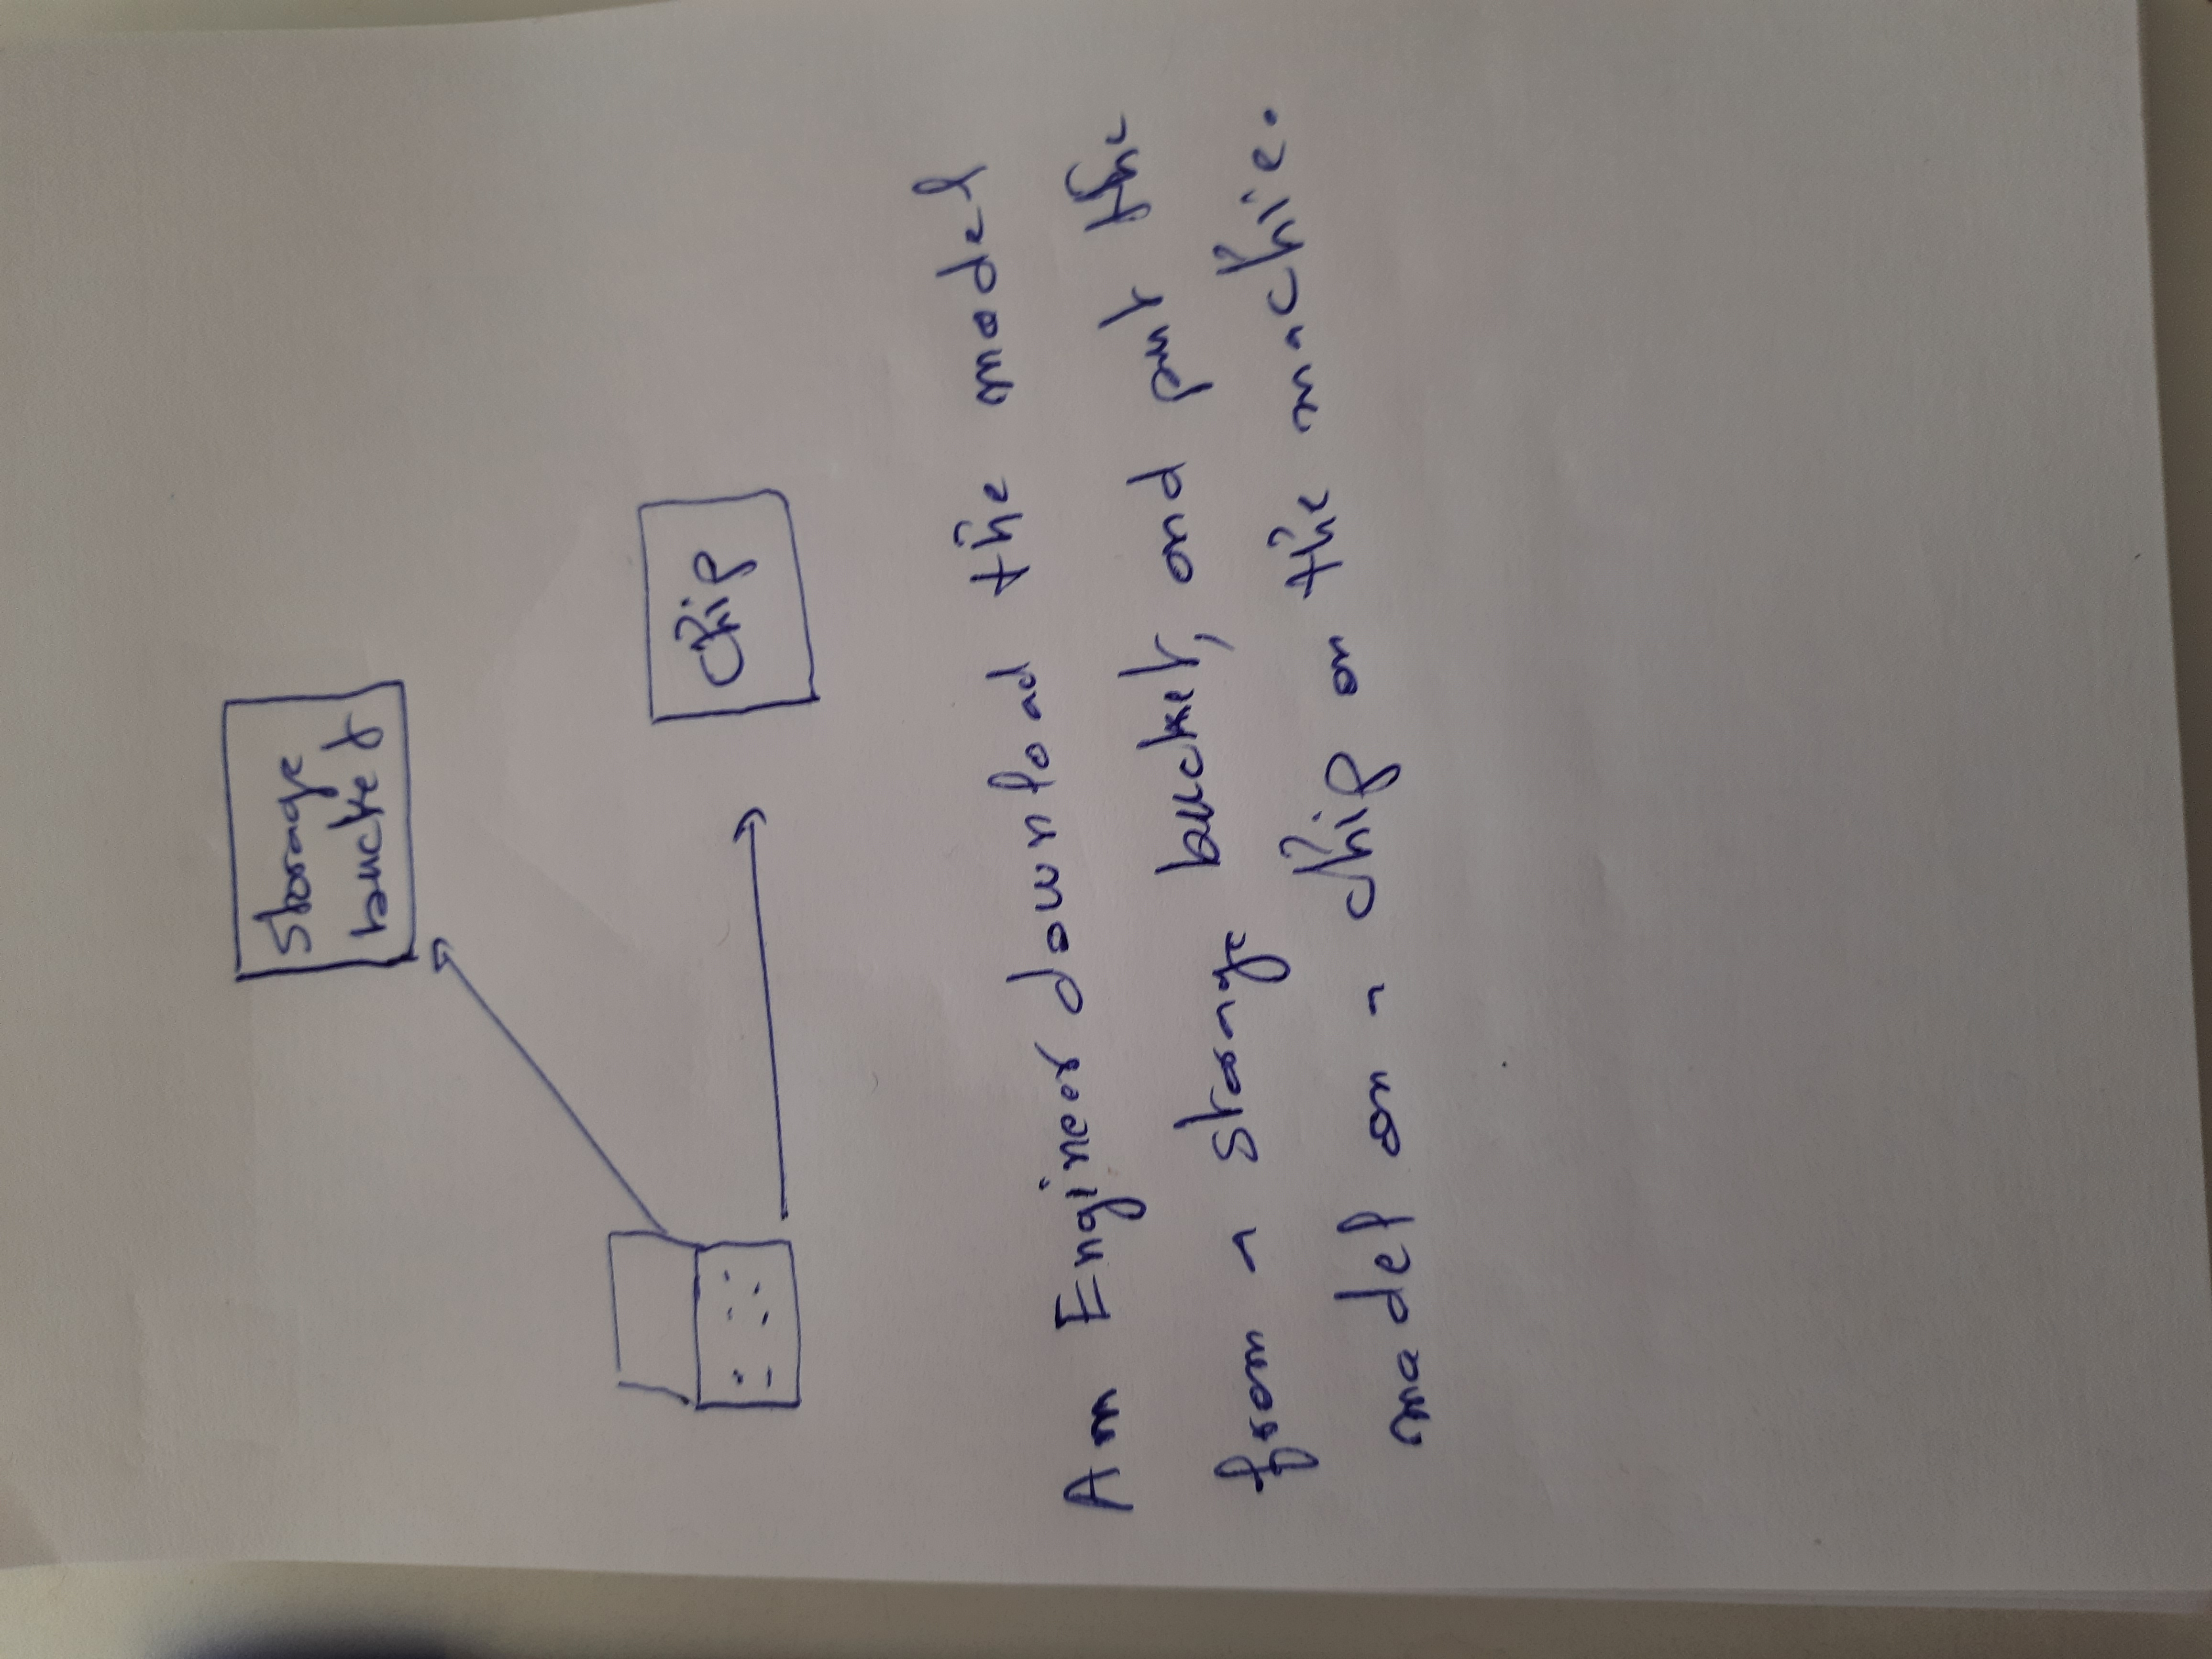 Storage
bucket
Chip
Am Engineer download the model
from a storage bucket, and put the
model on a chip on the machie.